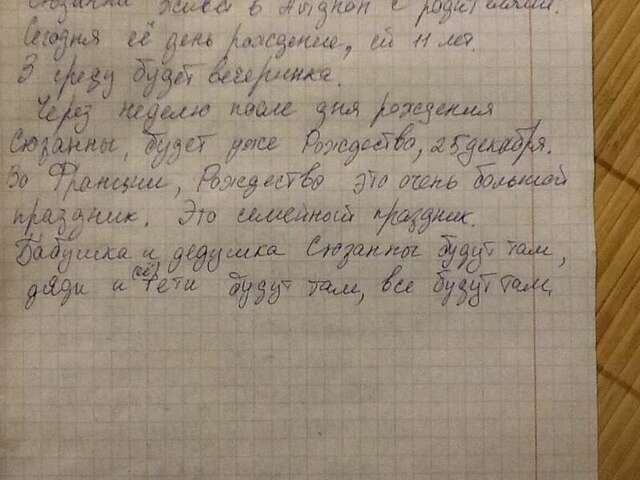 Сюзанна живёт в Авиньон с родителями.
Сегодня её день рождение, ей 11 лет.
В среду будет вечеринка.
Через неделю после дня рождения
Сюзанны, будет уже Рождество, 25 декабря.
Во Франции, Рождество это очень большой
праздник. Это семейный праздник.
Бабушка и дедушка Сюзанны будут там,
дяди и её тети будут там, все будут там.